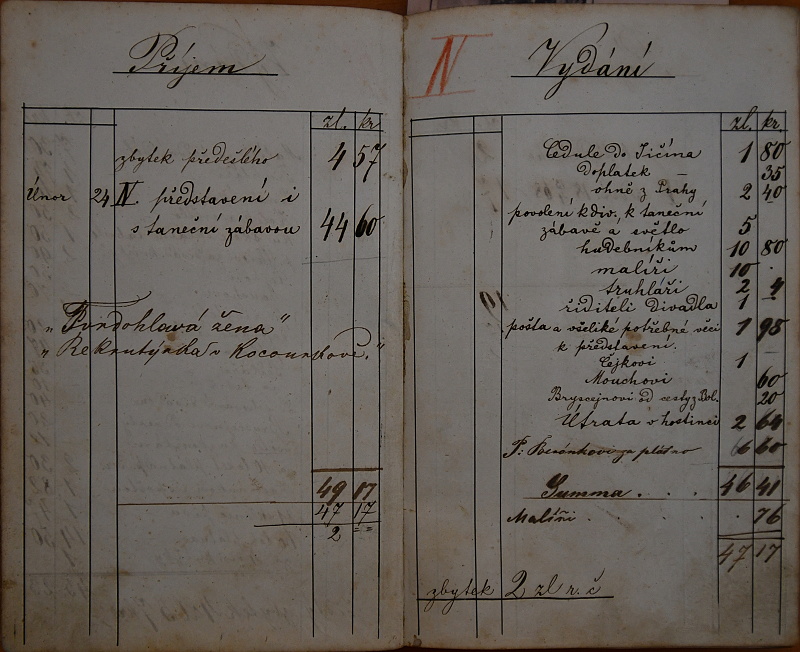 Příjem
zl. kr
zbytek předešlého 4 57
Únor 24 IV. představení i
s taneční zábavou 44 60
„Tvrdohlavá žena"
„Rekrutýrka v Kocourkově."
49 17
47 17
2 = =
IV
Vydání
zl. kr.
Cedule do Jičína 1 80
Doplatek – 35
ohně z Prahy 2 40
povolení k div., k taneční
zábavě a světlo 5
hudebníkům 10 80
malíři 10 .
truhláři 2 4
řiditeli divadla 1 –
pošta a všeliké potřebné věci 1 98
k představení.
Čejkovi 1
Mouchovi 60
Bryscejnovi od cesty z Bol. 20
Útrata v hostinci 2 64
P. za plátno 6 60
Summa . . . 46 41
Malíři . . . 76
47 17
zbytek 2 zl r. č